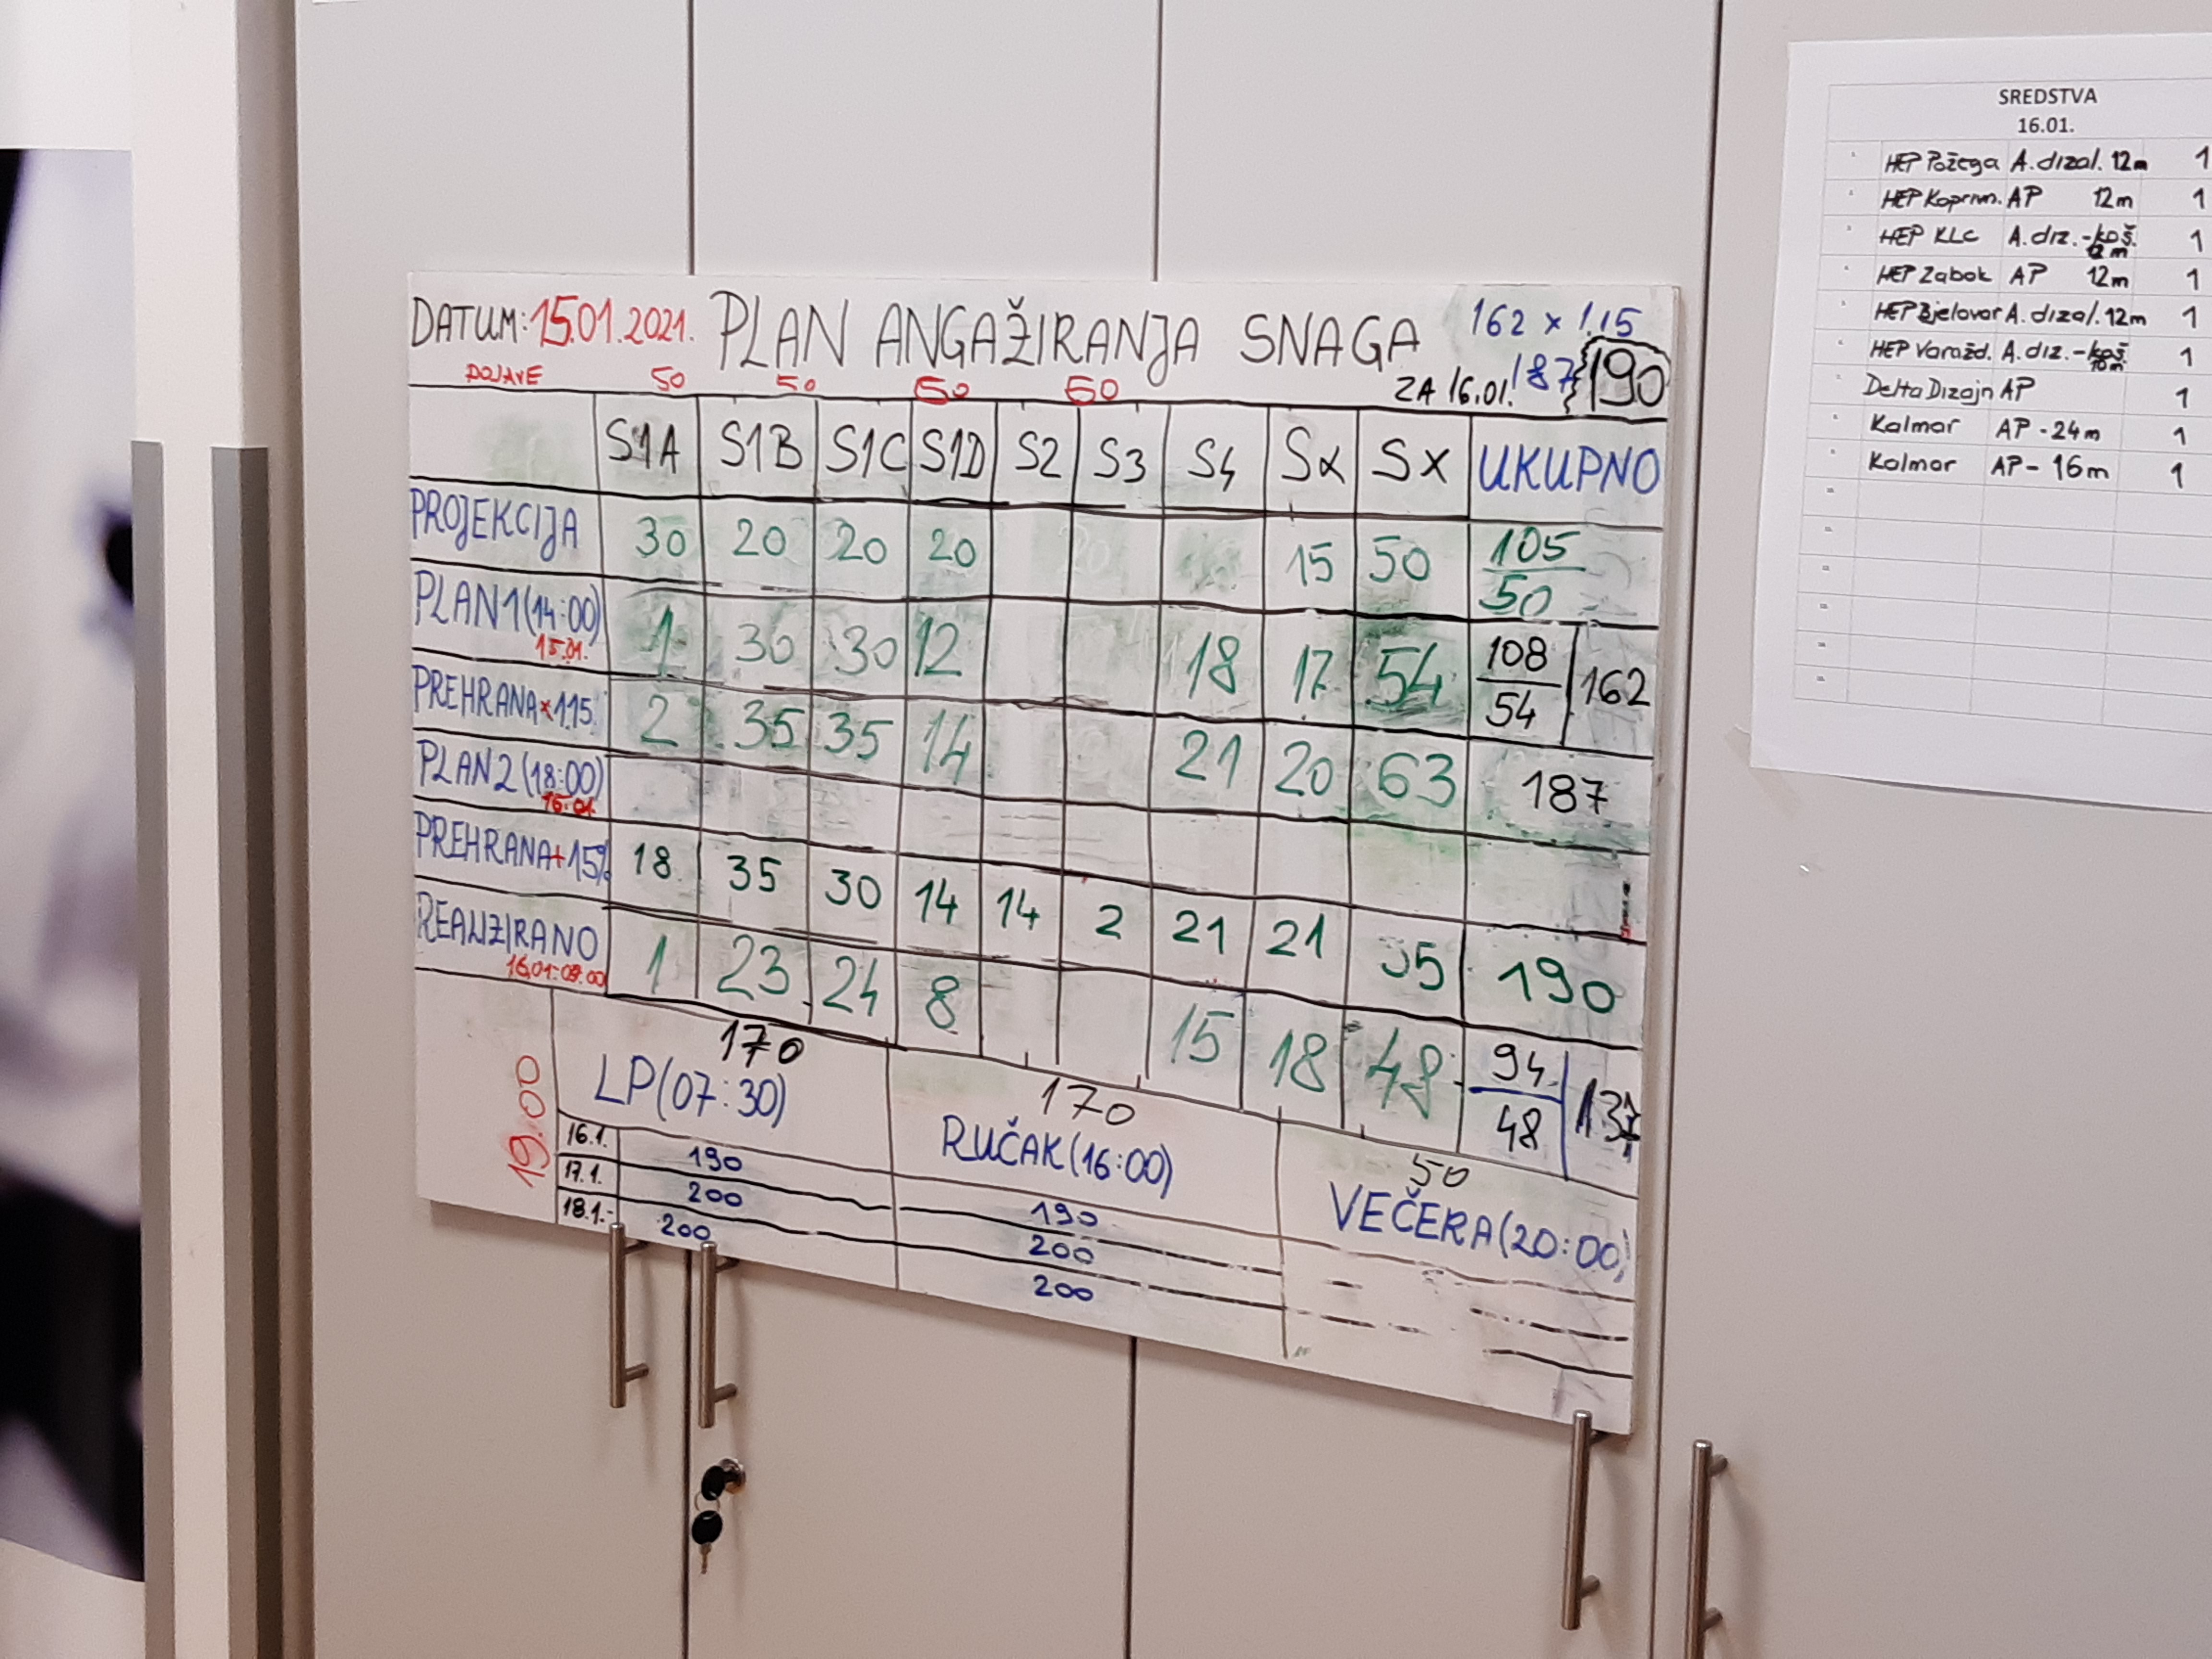 DATUM: 15.01.2021. PLAN ANGAŽIRANJA SNAGA 162 x 1.15
DOJAVE 50 50 50 50 ZA 16.01. 187 190
S1A S1B S1C S1D S2 S3 S4 Sα SX UKUPNO
PROJEKCIJA 30 20 20 20 15 50 105
50
PLAN1 (14:00) 1 30 30 12 18 17 54 108 162
15.01. 54
PREHRANA x 1.15. 2 35 35 14 21 20 63 187
PLAN 2 (18:00)
15.01.
PREHRANA+15% 18 35 30 14 14 2 21 21 35 190
REALIZIRANO 1 23 24 8 15 18 48 94
16.01-08.00 48
19.00
170 170 50
LP (07:30) RUČAK (16:00) VEČERA (20:00)
16.1. 190 190
17.1. 200 200
18.1. 200 200
SREDSTVA
16.01.
HEP Požega A. dizal. 12m 1
HEP Kopriv. AP 12m 1
HEP KLC A. diz. - koš. 1
HEP Zabok AP 12m 1
HEP Bjelovar A. dizal. 12m 1
HEP Varažd. A. diz. - koš 1
Delta Dizajn AP 1
Kalmar AP - 24m 1
Kolmar AP - 16m 1